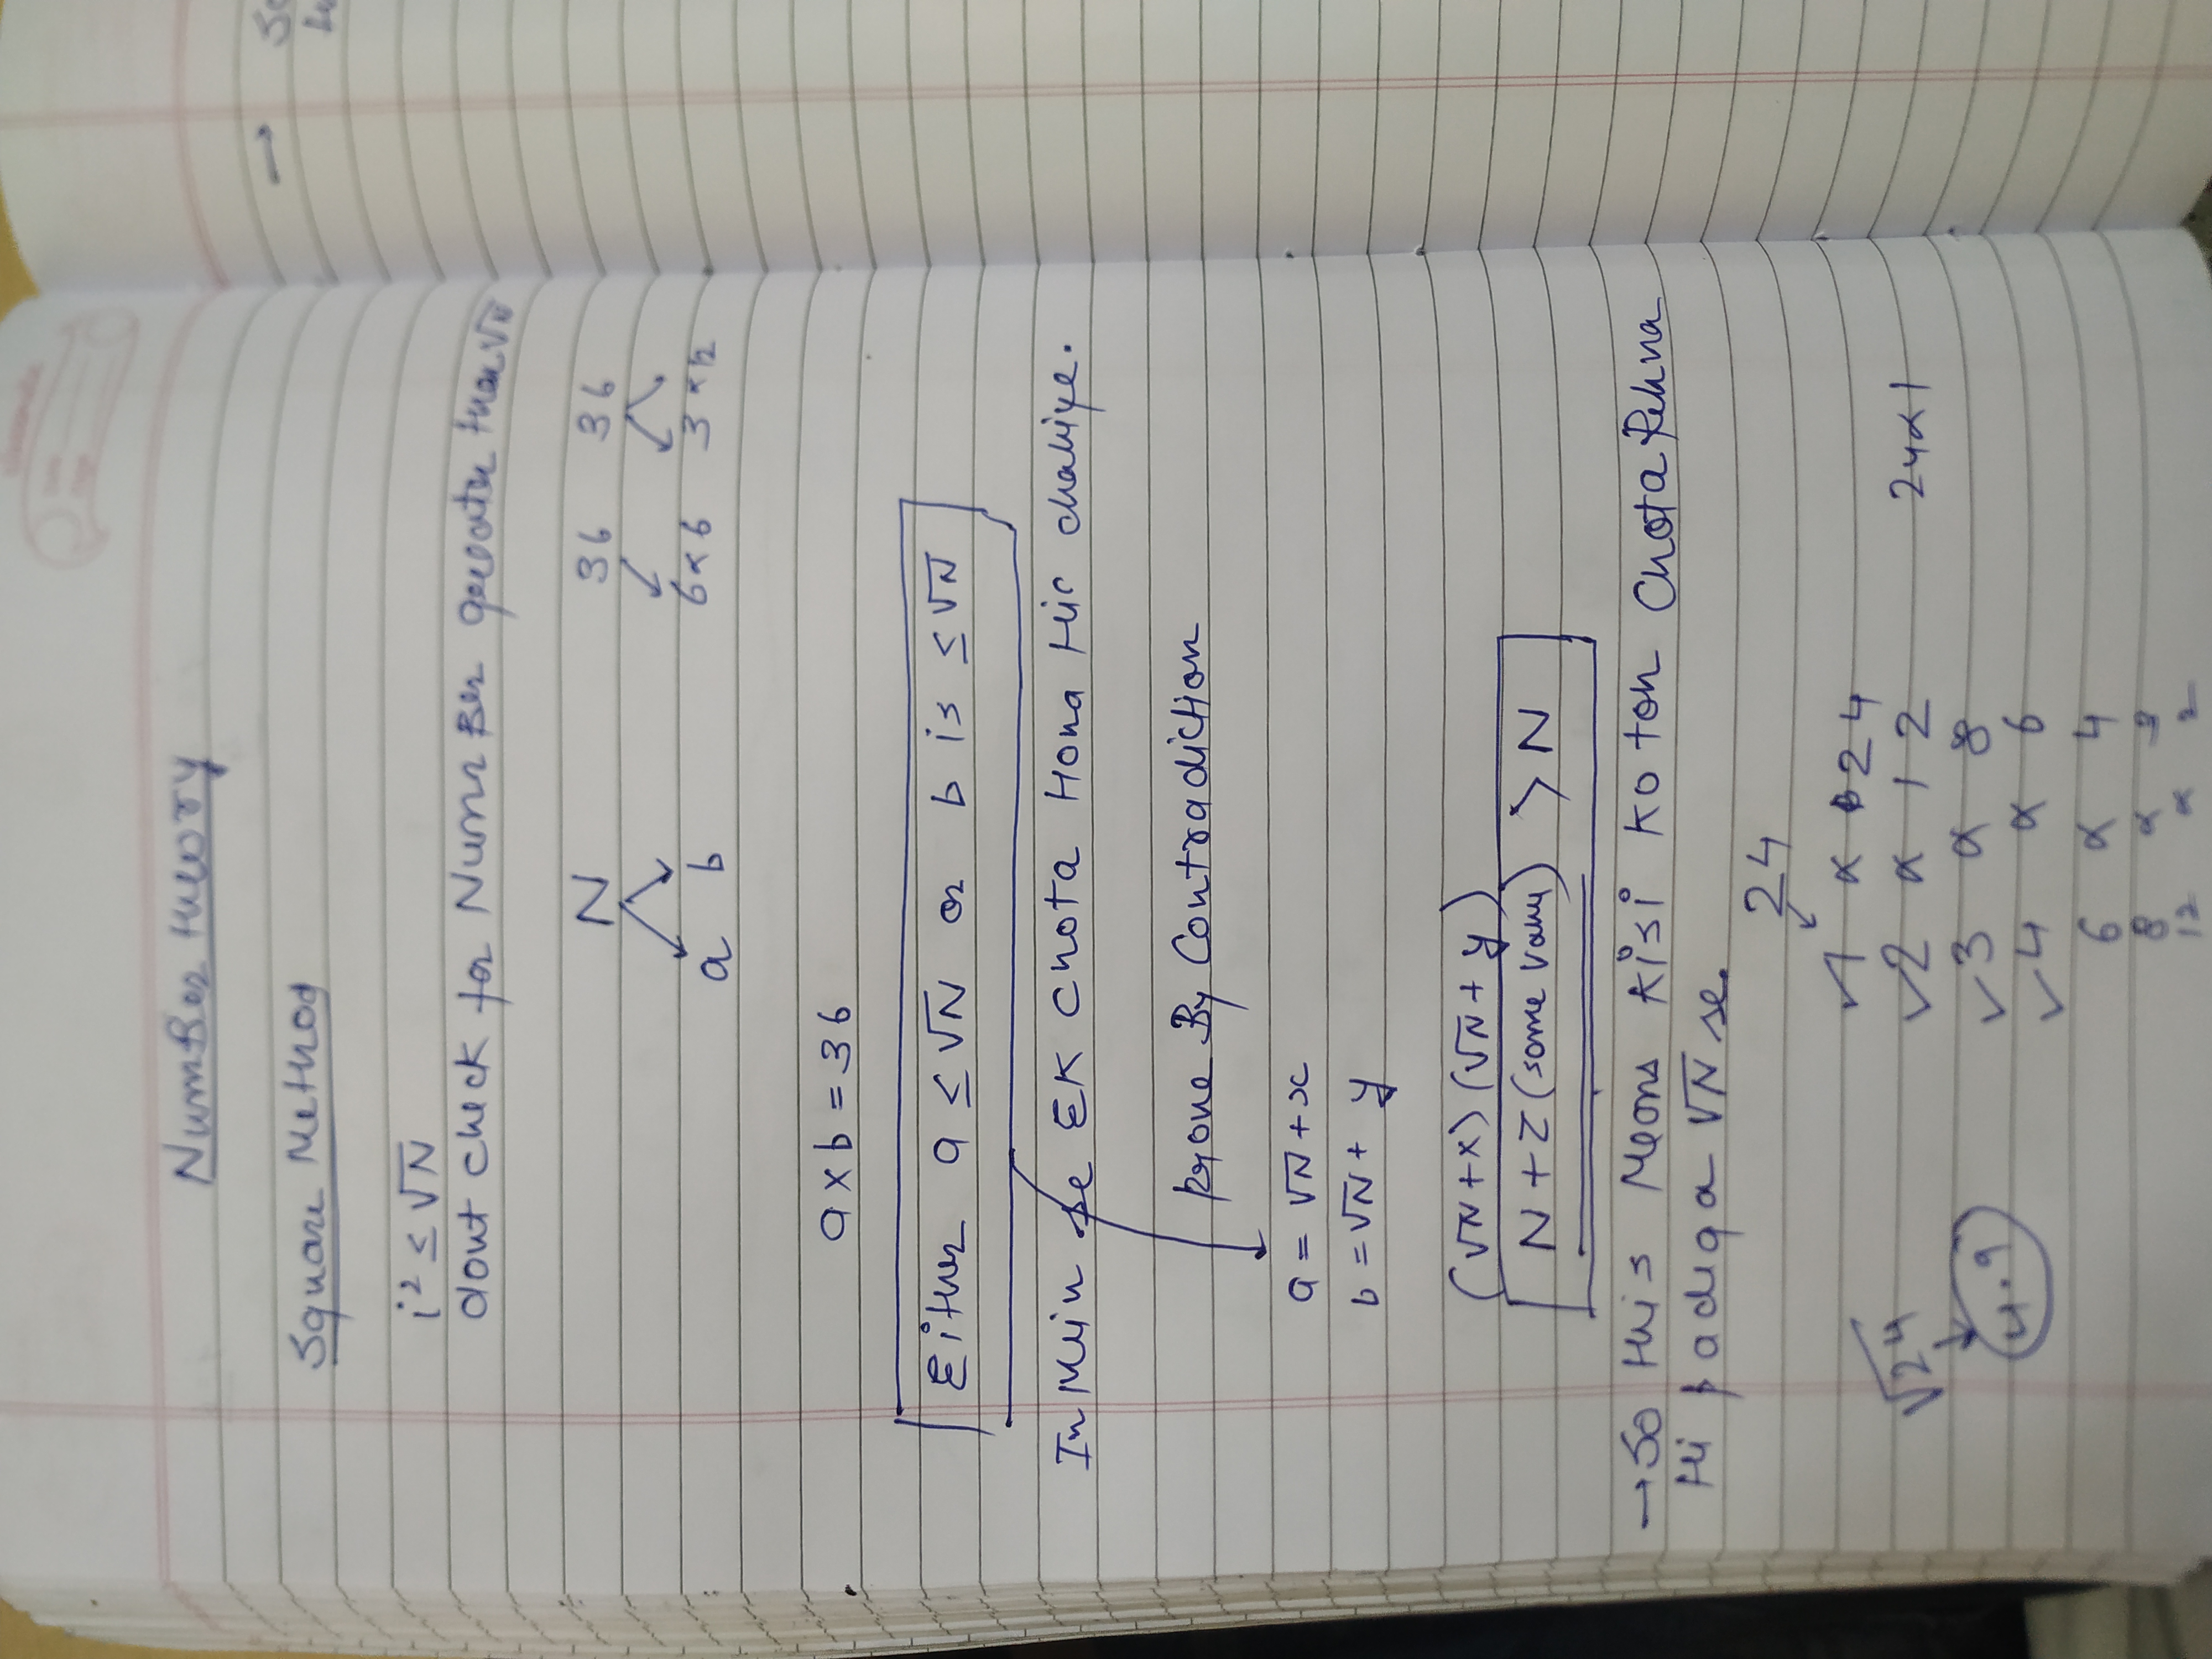 Number theory
Square Method
i² ≤ √N
dont check for Number greater than √N
N 36 36
a b 6 × 6 3 × 12
a × b = 36
Either a ≤ √N or b is ≤ √N
In Mein se EK Chota Hona Hi chahiye.
Prove By Contradiction
a = √N + x
b = √N + y
(√N + x) (√N + y)
N + Z (some value) > N
→ So this Means kisi Ko toh Chota Rehna
Hi padega √N se.
24
✓ 1 × 24
√24 ✓ 2 × 12 24 × 1
4.9 ✓ 3 × 8
✓ 4 × 6
6 × 4
8 × 3
12 × 2